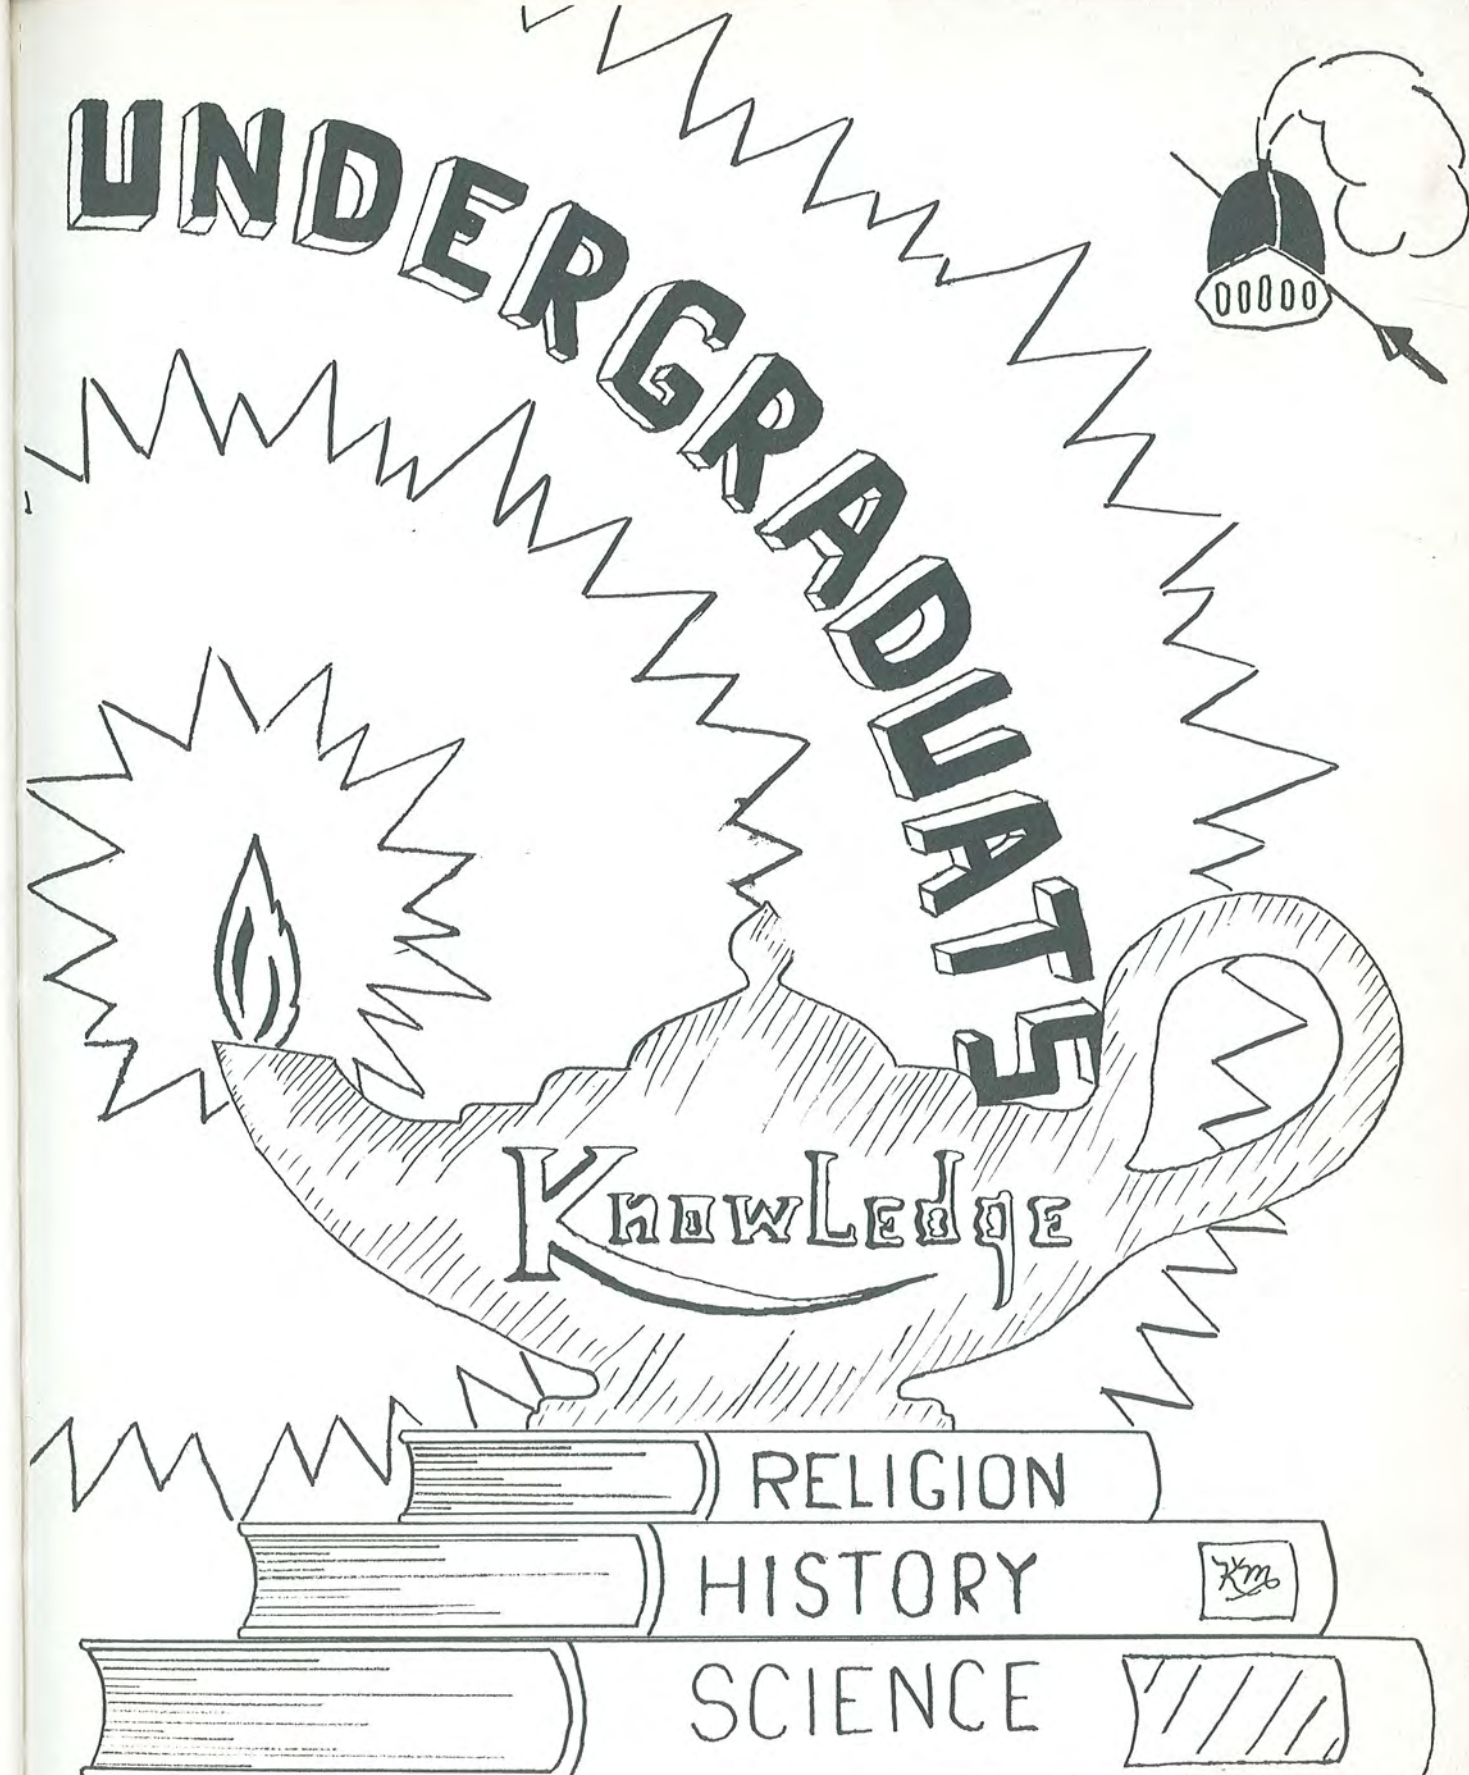 UNDERGRADUATS
KnowLedge
RELIGION
HISTORY
Km
SCIENCE